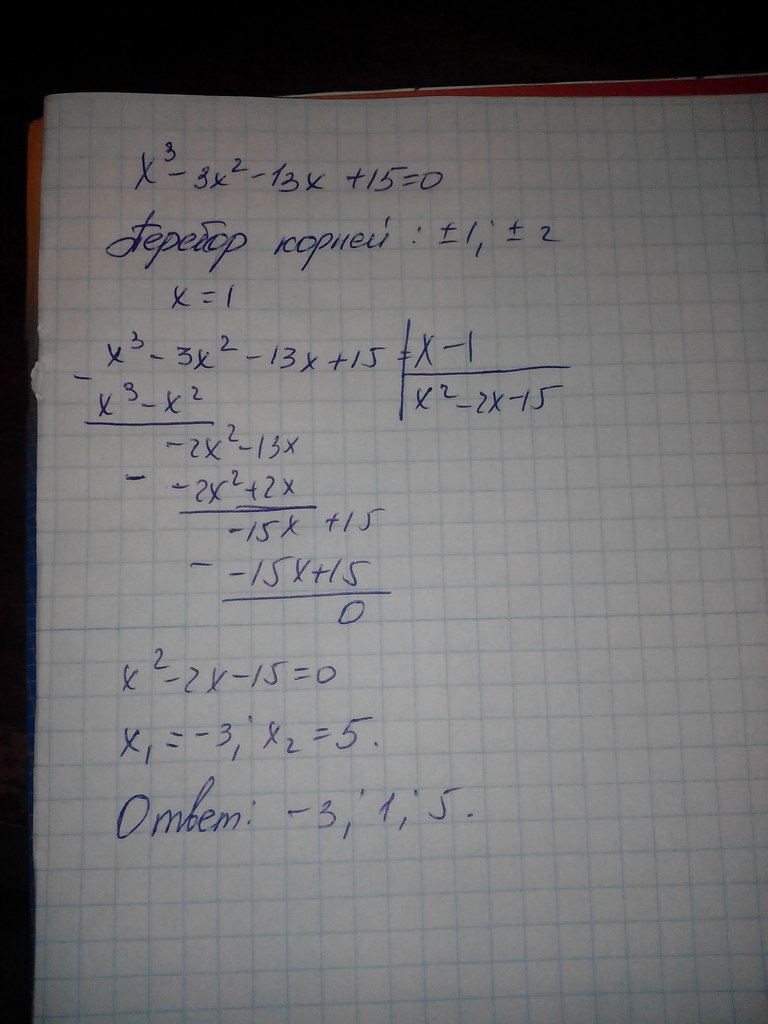 x³ - 3x² - 13x + 15 = 0
Перебор корней : ± 1; ± 2
x = 1
x³ - 3x² - 13x + 15 | x - 1
- x³ - x² | x² - 2x - 15
-2x² - 13x
- -2x² + 2x
-15x + 15
- -15x + 15
0
x² - 2x - 15 = 0
x₁ = -3; x₂ = 5.
Ответ: -3; 1; 5.